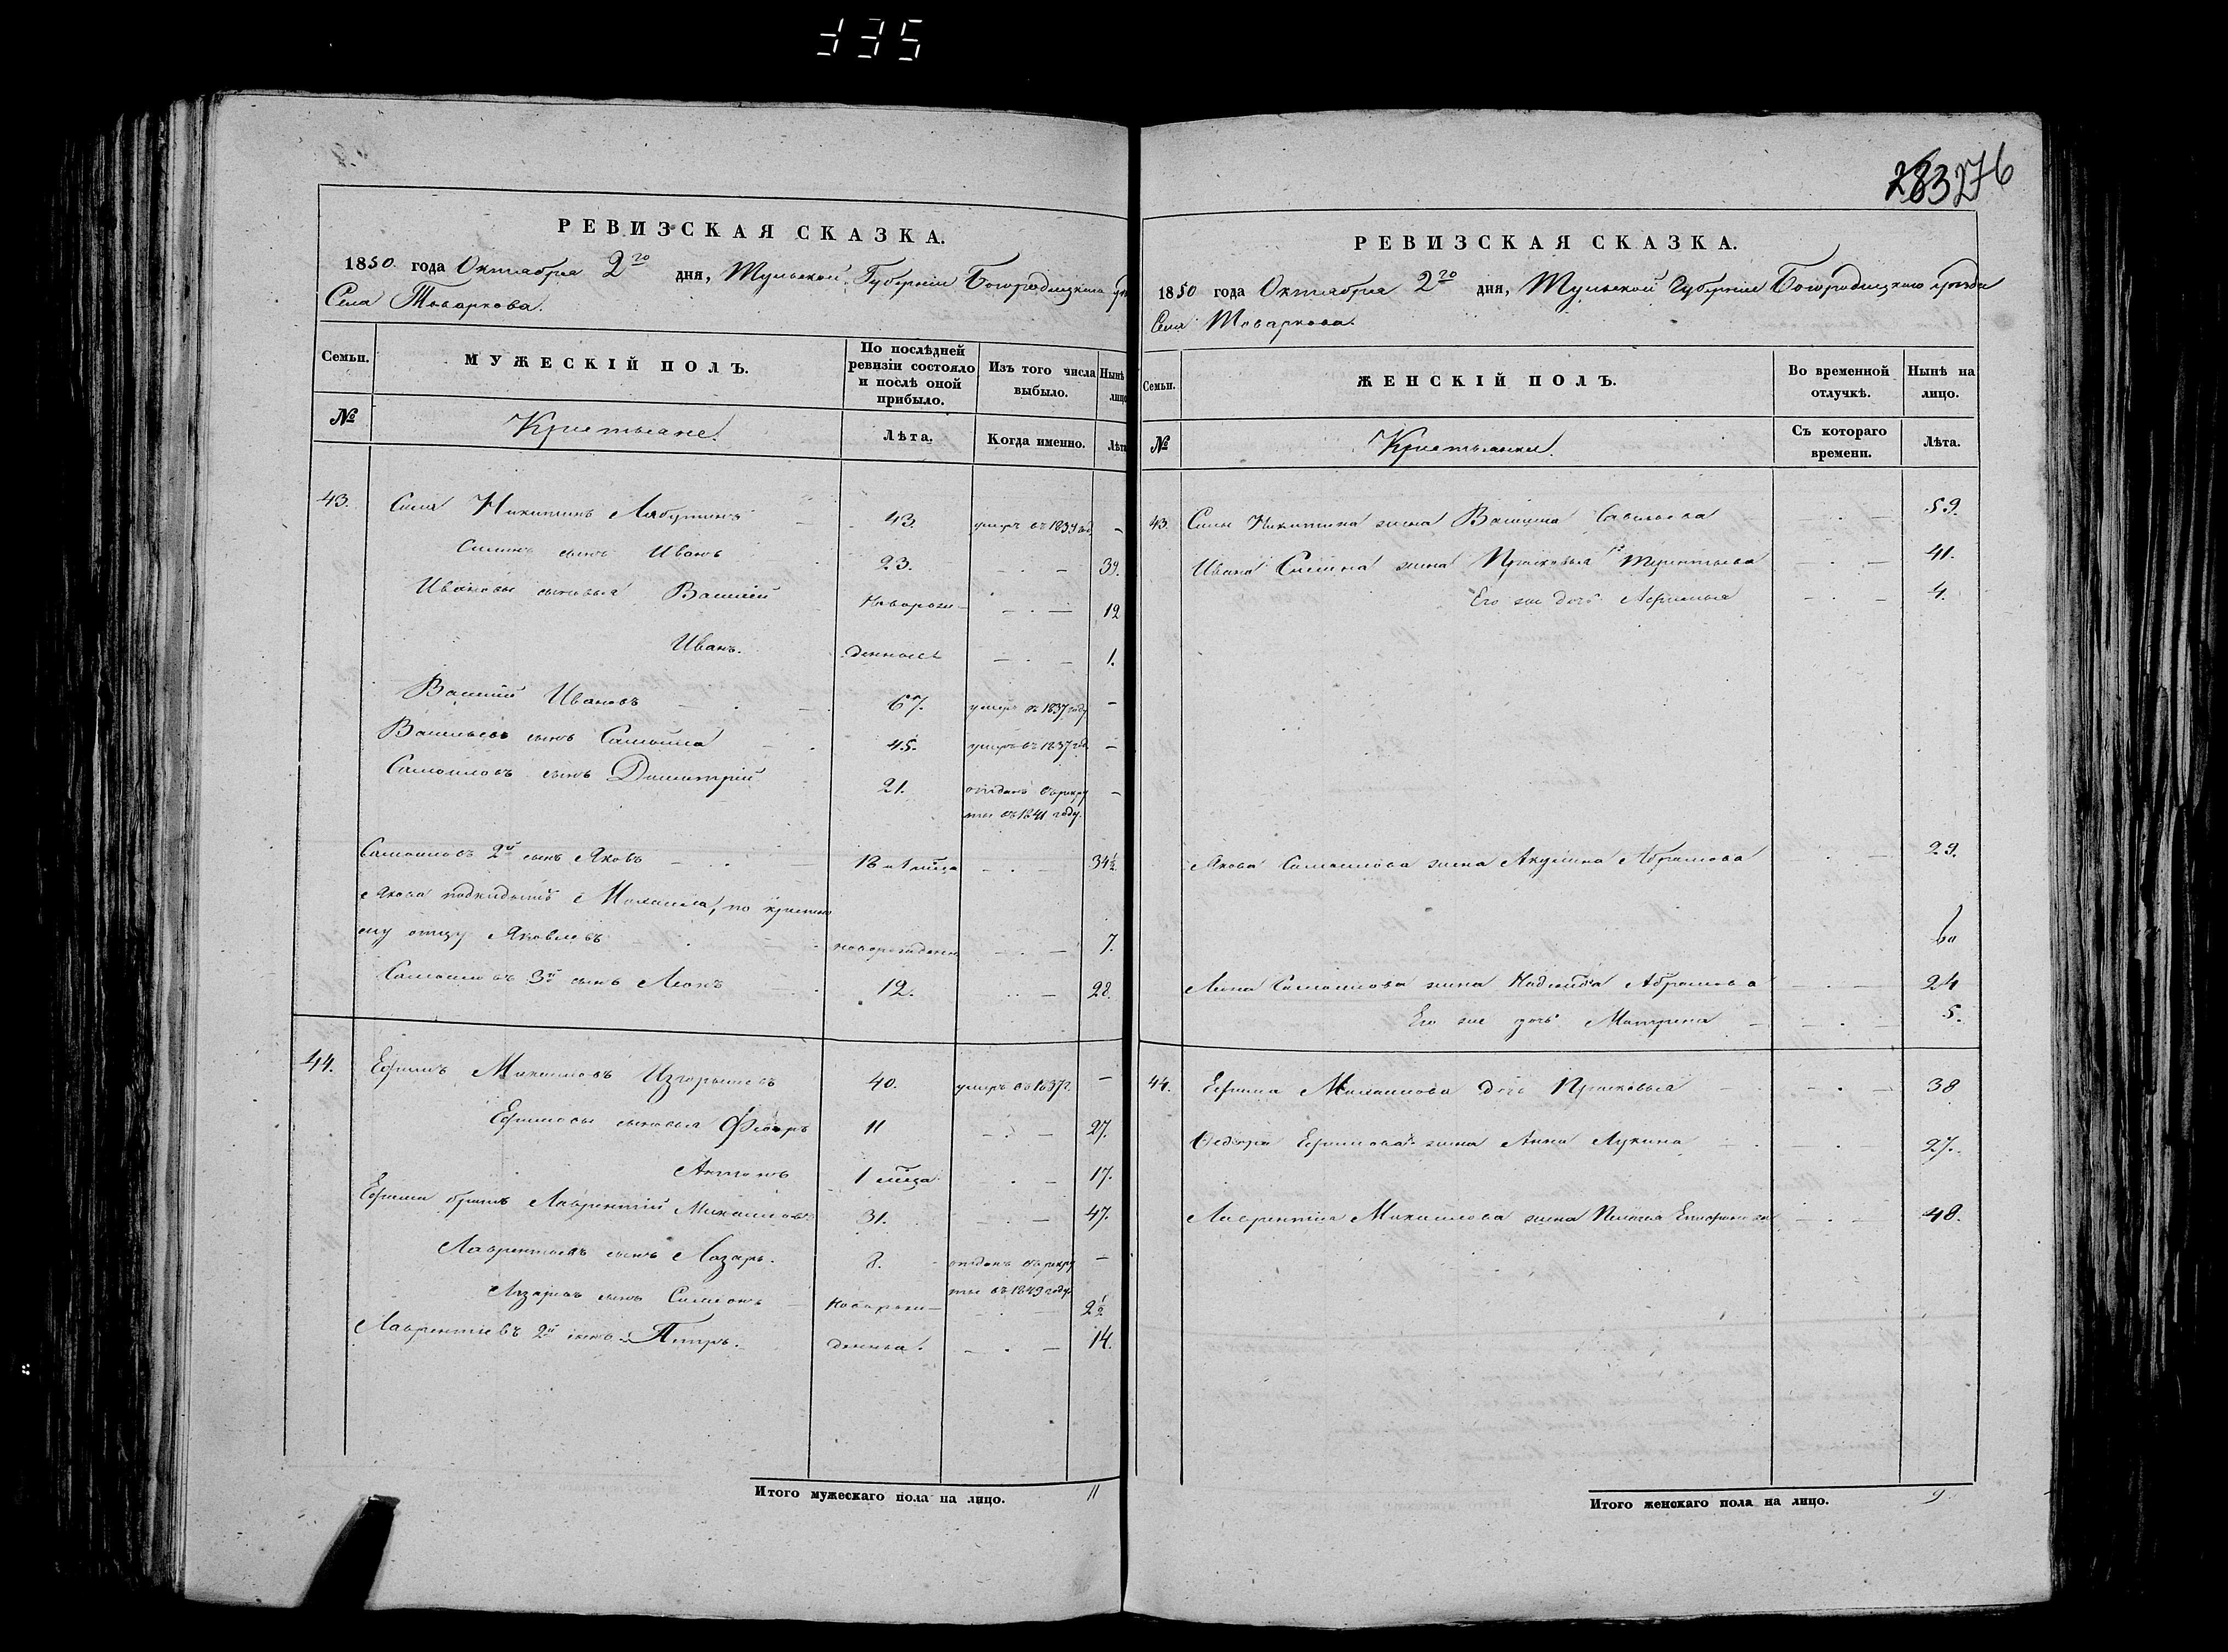 335
283 276
РЕВИЗСКАЯ СКАЗКА.
1850 года Октября 2го дня, Тульской Губерніи Богородицкаго
Села Товаркова.
Семьи.
МУЖЕСКІЙ ПОЛЪ.
По послѣдней ревизіи состояло и послѣ оной прибыло.
Изъ того числа выбыло.
Нынѣ лицо
№
Крестьяне.
Лѣта.
Когда именно.
Лѣта
43. Сила Никитинъ Лябутинъ 43. умеръ въ 1834 год. —
Силинъ сынъ Иванъ 23. — . — 39.
Ивановы сыновья Василій Новорож- — . — 12
Иванъ. денные — . — 1.
Василій Ивановъ — . — 67. умеръ въ 1837 году —
Васильевъ сынъ Самойла — . 45. умеръ въ 1837 год. —
Самойловъ сынъ Димитрій 21. отданъ въ рекру —
ты въ 1841 году.
Самойловъ 2й сынъ Яковъ — . — 18 и 1 мѣца — . — 34½
Якова подкидышъ Михаила, по крестно
му отцу Яковлевъ новорожденъ — . — 7.
Самойловъ 3й сынъ Леонъ — . 12. . . — 28.
44. Ефимъ Михайловъ Изгорышевъ 40. умеръ въ 1837 г. —
Ефимовы сыновья Федоръ 11 — . — 27.
Антонъ 1 мѣца . — . — 17.
Ефима братъ Лаврентій Михайловъ 31. — . — 47.
Лаврентьевъ сынъ Лазарь. 8. отданъ въ рекру —
ты въ 1849 году.
Лазаревъ сынъ Симеонъ — Новорож- — . — 2½
Лаврентіевъ 2й сынъ Петръ. денны. — . — 14.
Итого мужескаго пола на лицо. 11
РЕВИЗСКАЯ СКАЗКА.
1850 года Октября 2го дня, Тульской Губерніи Богородицкаго уѣзда
Села Товаркова.
Семьи.
ЖЕНСКІЙ ПОЛЪ.
Во временной отлучкѣ.
Нынѣ на лицо.
№
Крестьянки.
Съ котораго времени.
Лѣта.
43. Силы Никитина жена Васина Савельева — . — 59.
Ивана Силина жена Прасковья Терентьева — . — 41.
Его же дочь Афимья — . — 4.
Якова Самойлова жена Акулина Абрамова . — 29.
Леона Самойлова жена Надежда Абрамова — . — 24
Его же дочь Матрена — — . — 5.
44. Ефима Михайлова дочь Прасковья — — . — 38
Федора Ефимова жена Анна Лукина — . — . 27.
Лаврентія Михайлова жена Пелагея — . — 48.
Итого женскаго пола на лицо. 9